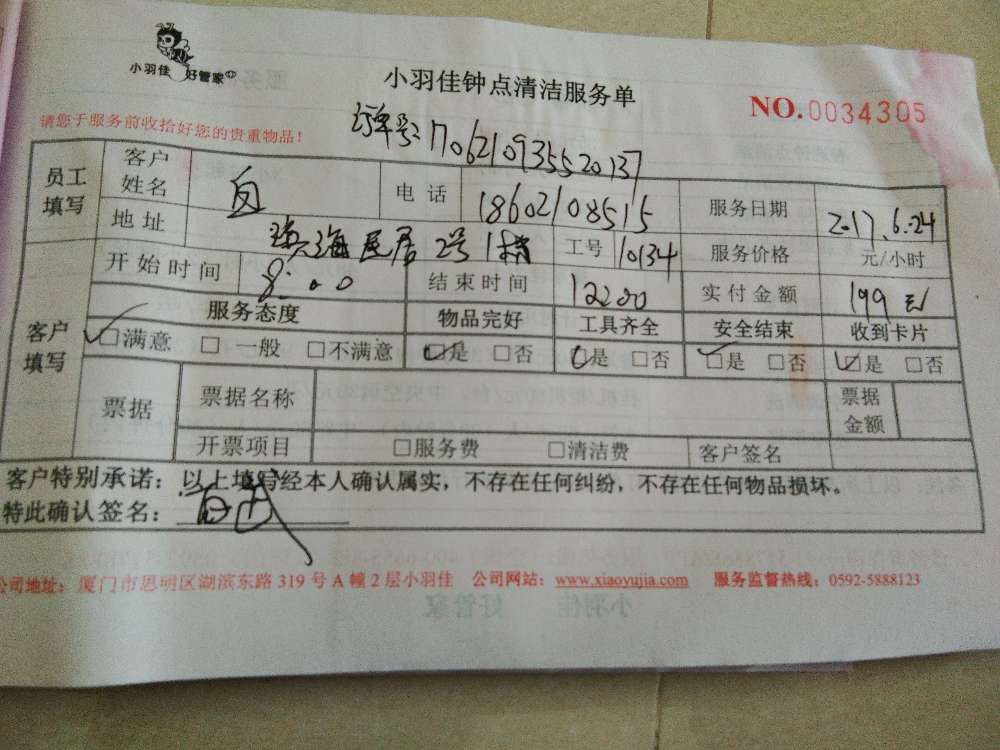 小羽佳 好管家
小羽佳钟点清洁服务单
NO.0034305
请您于服务前收拾好您的贵重物品！
订单号:17062109355520137
员工填写 客户姓名 电话 18602108515 服务日期 2017.6.24
地址 滨海民居2号1梯 工号 10134 服务价格 元/小时
客户填写 开始时间 8:00 结束时间 12:00 实付金额 199元
服务态度 物品完好 工具齐全 安全结束 收到卡片
☑满意 □一般 □不满意 ☑是 □否 ☑是 □否 ☑是 □否 ☑是 □否
票据 票据名称 票据金额
开票项目 □服务费 □清洁费 客户签名
客户特别承诺：以上填写经本人确认属实，不存在任何纠纷，不存在任何物品损坏。
特此确认签名：
公司地址：厦门市思明区湖滨东路319号A幢2层小羽佳 公司网站：www.xiaoyujia.com 服务监督热线：0592-5888123